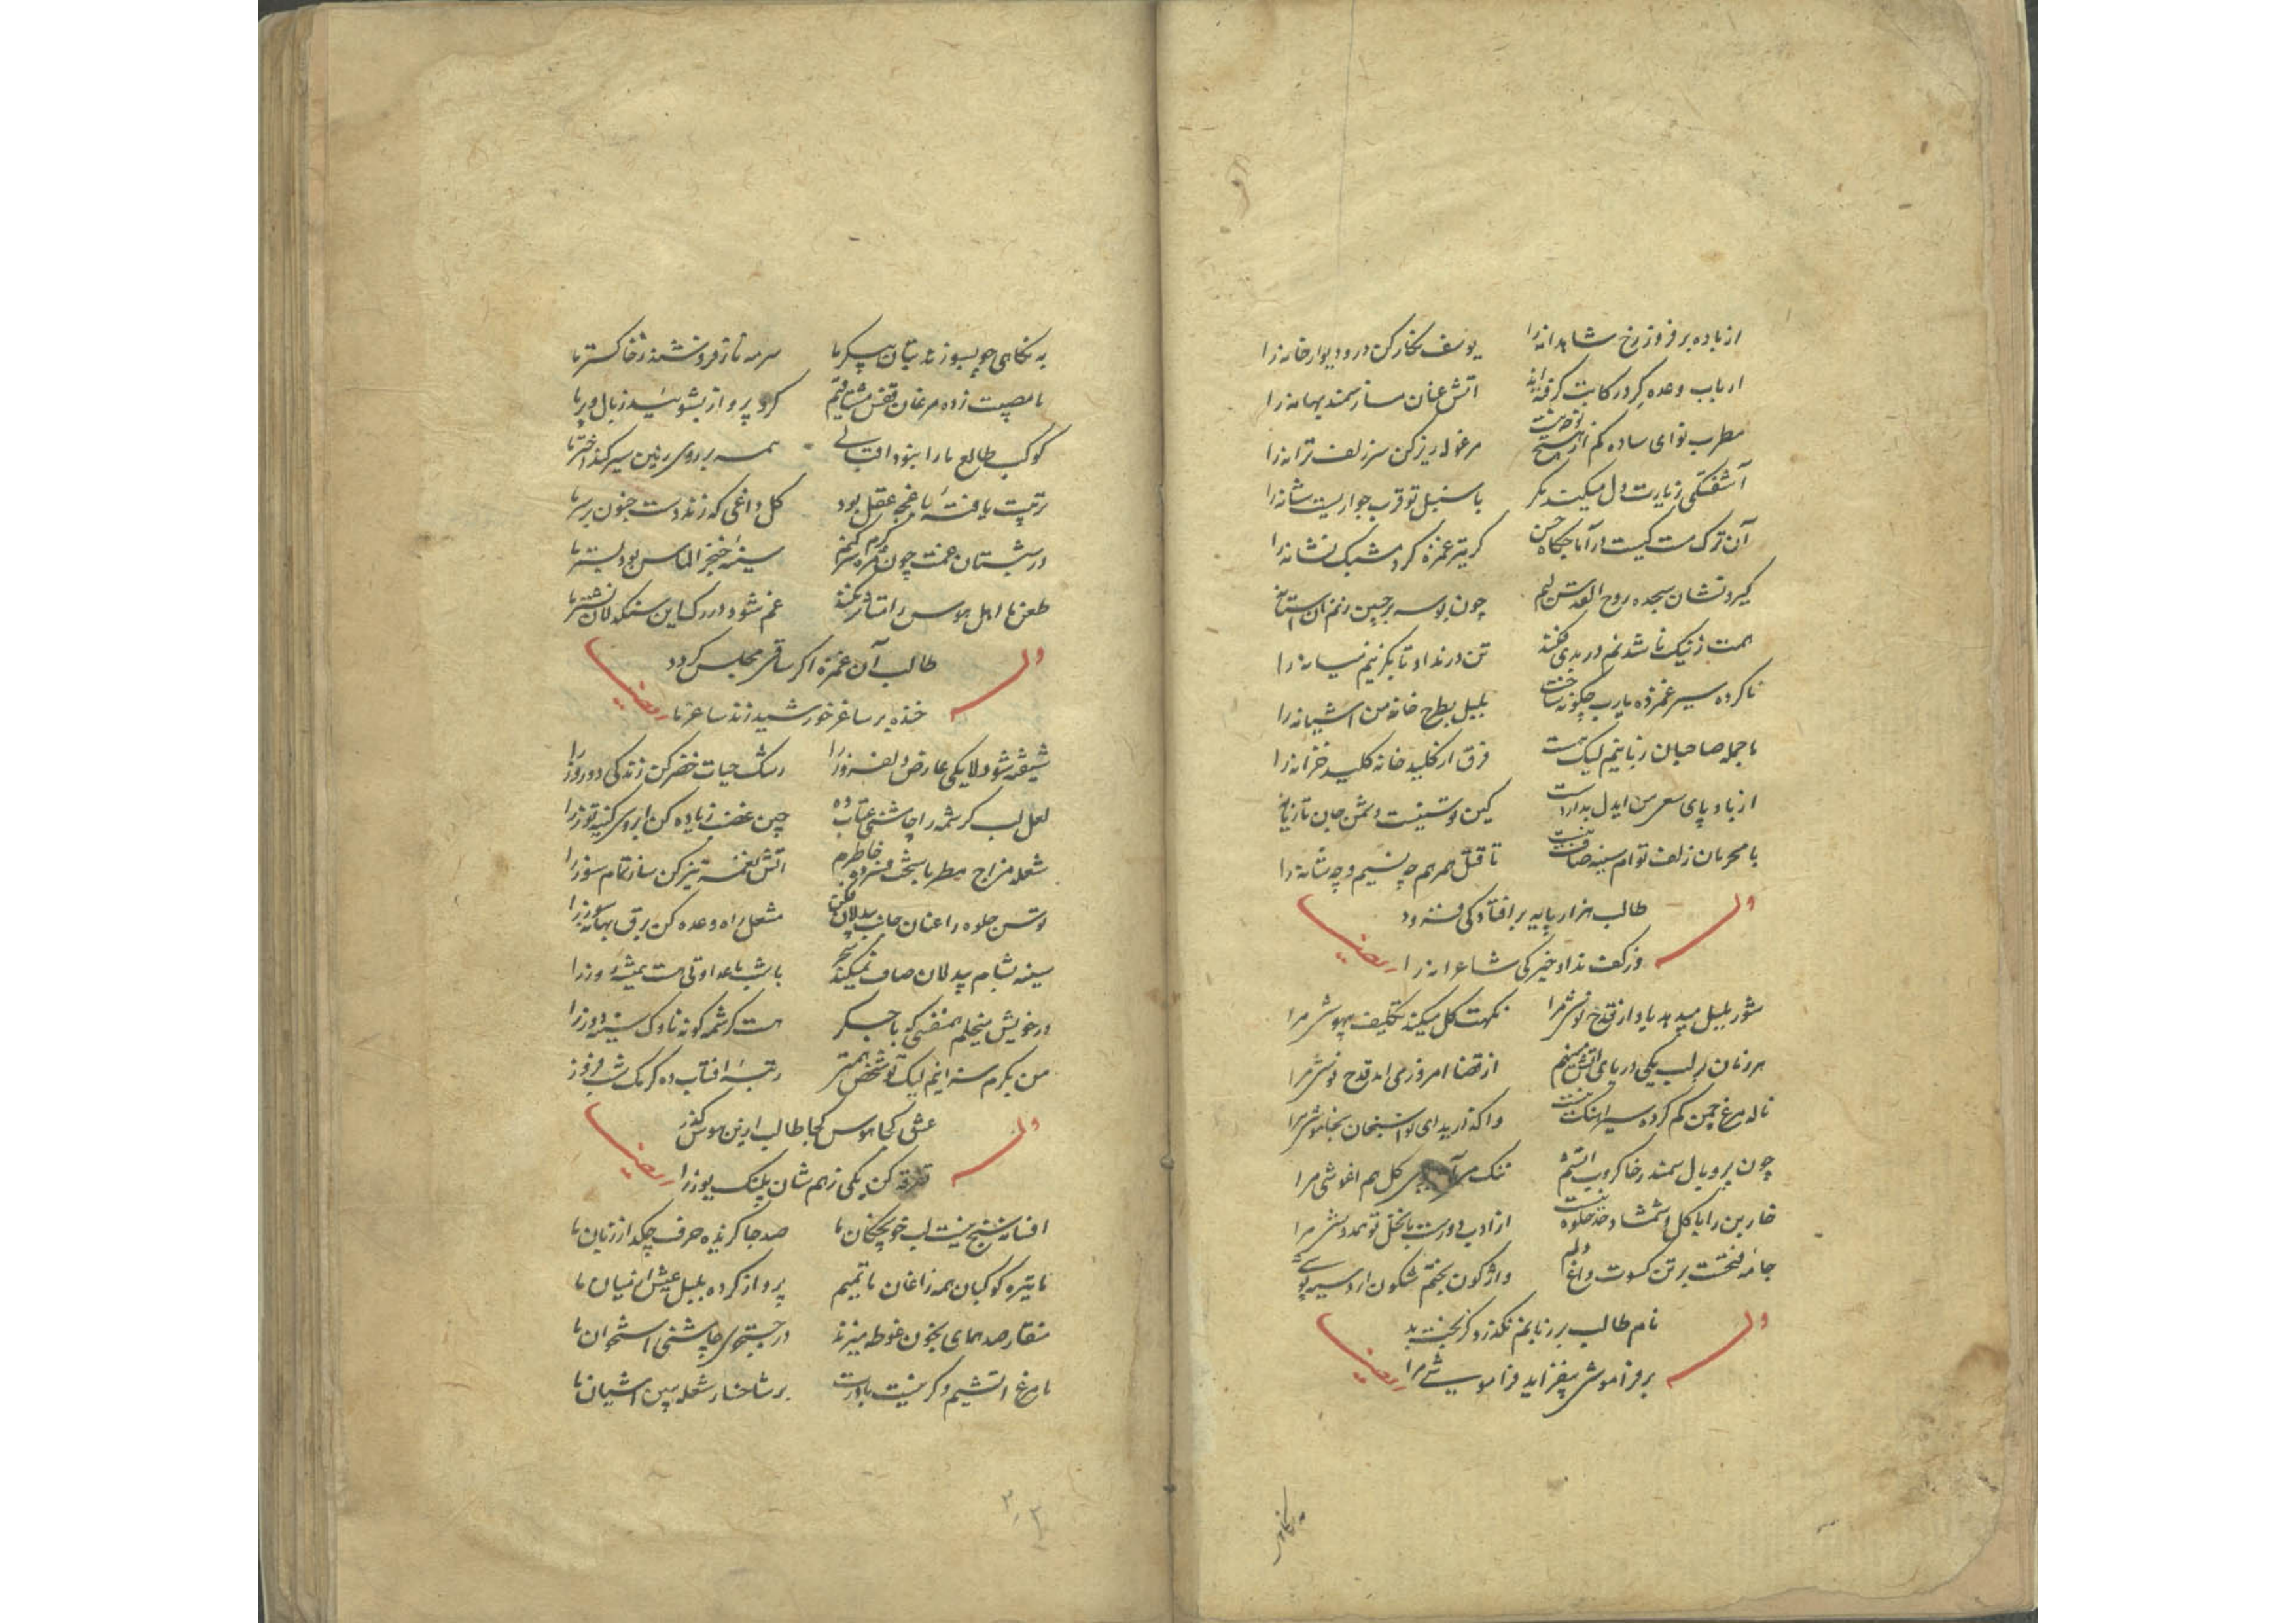 از باده برفروز رخ شاهدانه را یوسف نگار کن در و دیوار خانه را
ارباب وعده گرد رکابت گرفته‌اند آتش عنان ساز سمند بهانه را
مطرب نوای ساده کم از هیچ مرغوله ریز کن سر زلف ترانه را
آشفتگی زیارت دل میکند مگر با سنبل تو قرب جواریست شانه را
آن ترک مست کیست در آماجگاه حسن کز تیر غمزه کرد مشبک نشانه را
گیرد نشان سجده روح القدس لبم چون بوسه بر جبین زنم آن آستانه را
همت ز نیک ناشدنم در بدی فکند تن در نداد تا بگزینم میانه را
ناکرده سیر غمزده یارب چگونه ساخت بلبل بطرح خانه من آشیانه را
با جمله صاحبان زبانیم لیک هست فرق از کلید خانه کلید خزانه را
از باد پای سعی من ایدل بدار دست کین توسنیست دشمن جان تازیانه را
با محرمان زلف توام سینه صاف نیست تا قتل همرهم چه نسیم و چه شانه را
وله
طالب هزار پایه بر افتادگی فزود
وز کف نداد خیرگی شاعرانه را
ایضا
شور بلبل میدهد یاد از قدح نوشی مرا نکهت گل میکند تکلیف بیهوشی مرا
هر زمان بر لب یکی دریای آتش مینهم از قضا امروز می آمد قدح نوشی مرا
ناله مرغ چمن کم کرده سیر آهنگ نیست واگذارید ای نواسنجان بخاموشی مرا
چون پر و بال سمندر خاکروب آتشم ننگ می آید گل هم اغوشی مرا
خاربن را با گل و شمشاد خد جلوه نیست از ادب دورست با نخل تو همدوشی مرا
جامه فتحست بر تن کسوت داغ دلم واژگون بختم شگون دارد سیه پوشی
وله
نام طالب بر زبانم نگذرد کز بخت بد
بر فراموشی بیفزاید فراموشی مرا
ایضا
به نگاهی
به نگاهی چو بسوزند بتان پیکر ما سرمه ناز فروشند ز خاکستر ما
ما مصیبت زده مرغان قفس مشتاقیم گرد پرواز بشوئید ز بال و پر ما
کوکب طالع ما را نبود اقبالی همه بر روی زمین سیر کند اختر ما
تربیت یافته ناخنچه عقل بود گل داغی که زند دست جنون بر سر ما
در شبستان غمت چون مژه سر گرم کنیم سینه خنجر الماس بود بستر ما
طعن ما اهل هوس را متأثر نکند غم شود در رگ این سنگدلان نشتر ما
وله
طالب آن غمزه اگر ساقی مجلس گردد
خنده بر ساغر خورشید زند ساغر ما
ایضا
شیفته شو دلا یکی عارض دلفروز را رشک حیات خضر کن زندگی دو روز را
لعل لب کرشمه را چاشنی عتاب ده چین غضب زیاده کن ابروی کینه توز را
شعله مزاج مطربا سخت فسرده خاطرم آتش نغمه تیز کن ساز تمام سوز را
توسن جلوه را عنان جانب بیدلان فکن مشعل راه وعده کن برق بهانه سوز را
سینه بشام بیدلان صاف نمیکند سحر با شب ما عداوتی هست همیشه روز را
در خویش میخلم همنفسی که با جگر هست کرشمه گونه ناوک سینه دوز را
من نکرم سزا نیم لیک تو شخص همتر رتبه آفتاب ده کرمک شب فروز
وله
عشق کجا هوس کجا طالب ازین هوس گذر
تفرقه کن یکی زهم شان پلنگ و یوز را
ایضا
افسانه سنج نیست لب خونچکان ما صد جا گزیده حرف چکد از زبان ما
ما تیره کوکبان همه زاغان ماتمیم پرواز کرده بلبل عیش از میان ما
منقار صد همای بخون غوطه میزند در جستجوی چاشنی استخوان ما
ما مرغ آتشیم و گر نیست باورت بر شاخسار شعله ببین آشیان ما